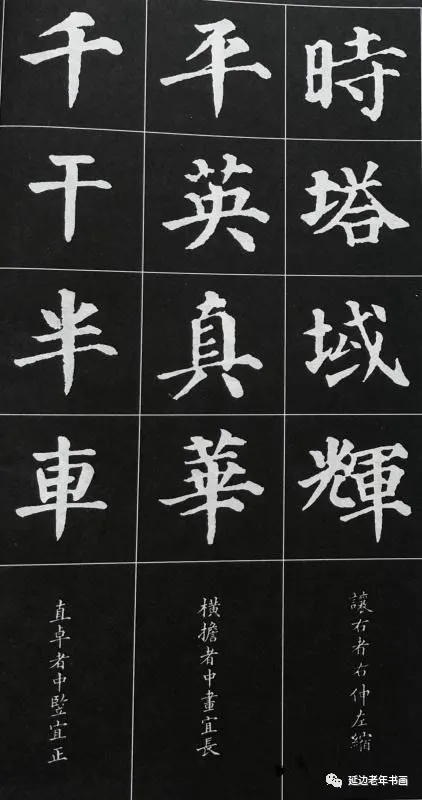 時塔域輝
讓右者右伸左縮
平英真華
橫擔者中畫宜長
千干半車
直卓者中竪宜正
延边老年书画